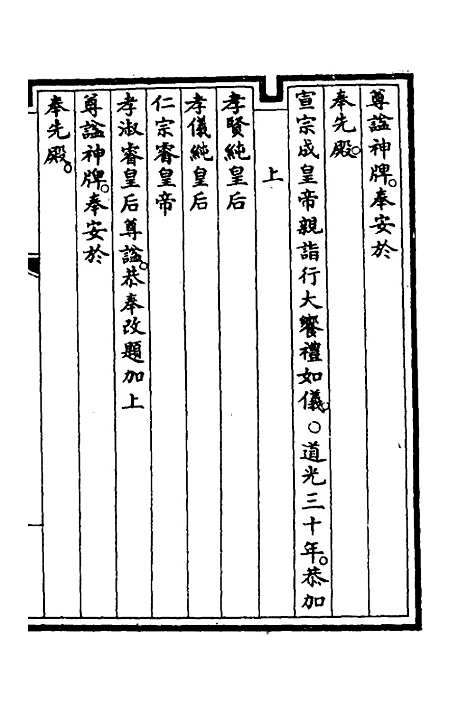 尊諡神牌。奉安於
奉先殿。
宣宗成皇帝親詣行大饗禮如儀。○道光三十年。恭加
上
孝賢純皇后
孝儀純皇后
仁宗睿皇帝
孝淑睿皇后尊諡。恭奉改題加上
尊諡神牌。奉安於
奉先殿。